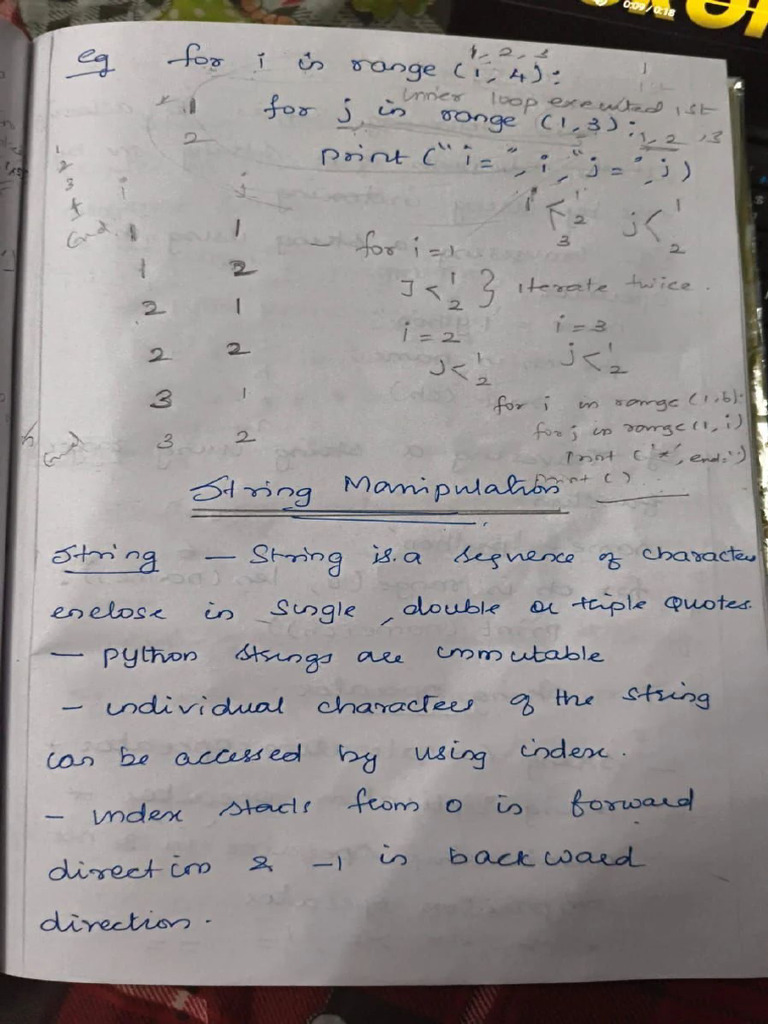 0:09/0:18
eg for i in range (1, 4):
1, 2, 3
inner loop executed 1st
for j in range (1, 3): 1, 2, 3
1
2
print ("i=", i, "j=", j)
i < 1 2 3 j < 1 2
i j
1 1
for i = 1
1 2
J < 1 2 } iterate twice.
2 1
i = 2 i = 3
2 2
j < 1 2 j < 1 2
3 1
for i in range (1,6):
for j in range (1, i)
3 2
print ('*', end='')
print ()
String Manipulation
String — String is a sequence of character
enclose in single, double or triple quotes.
— python strings are immutable
— individual characters of the string
can be accessed by using index.
— index starts from 0 in forward
direction & -1 in backward
direction.